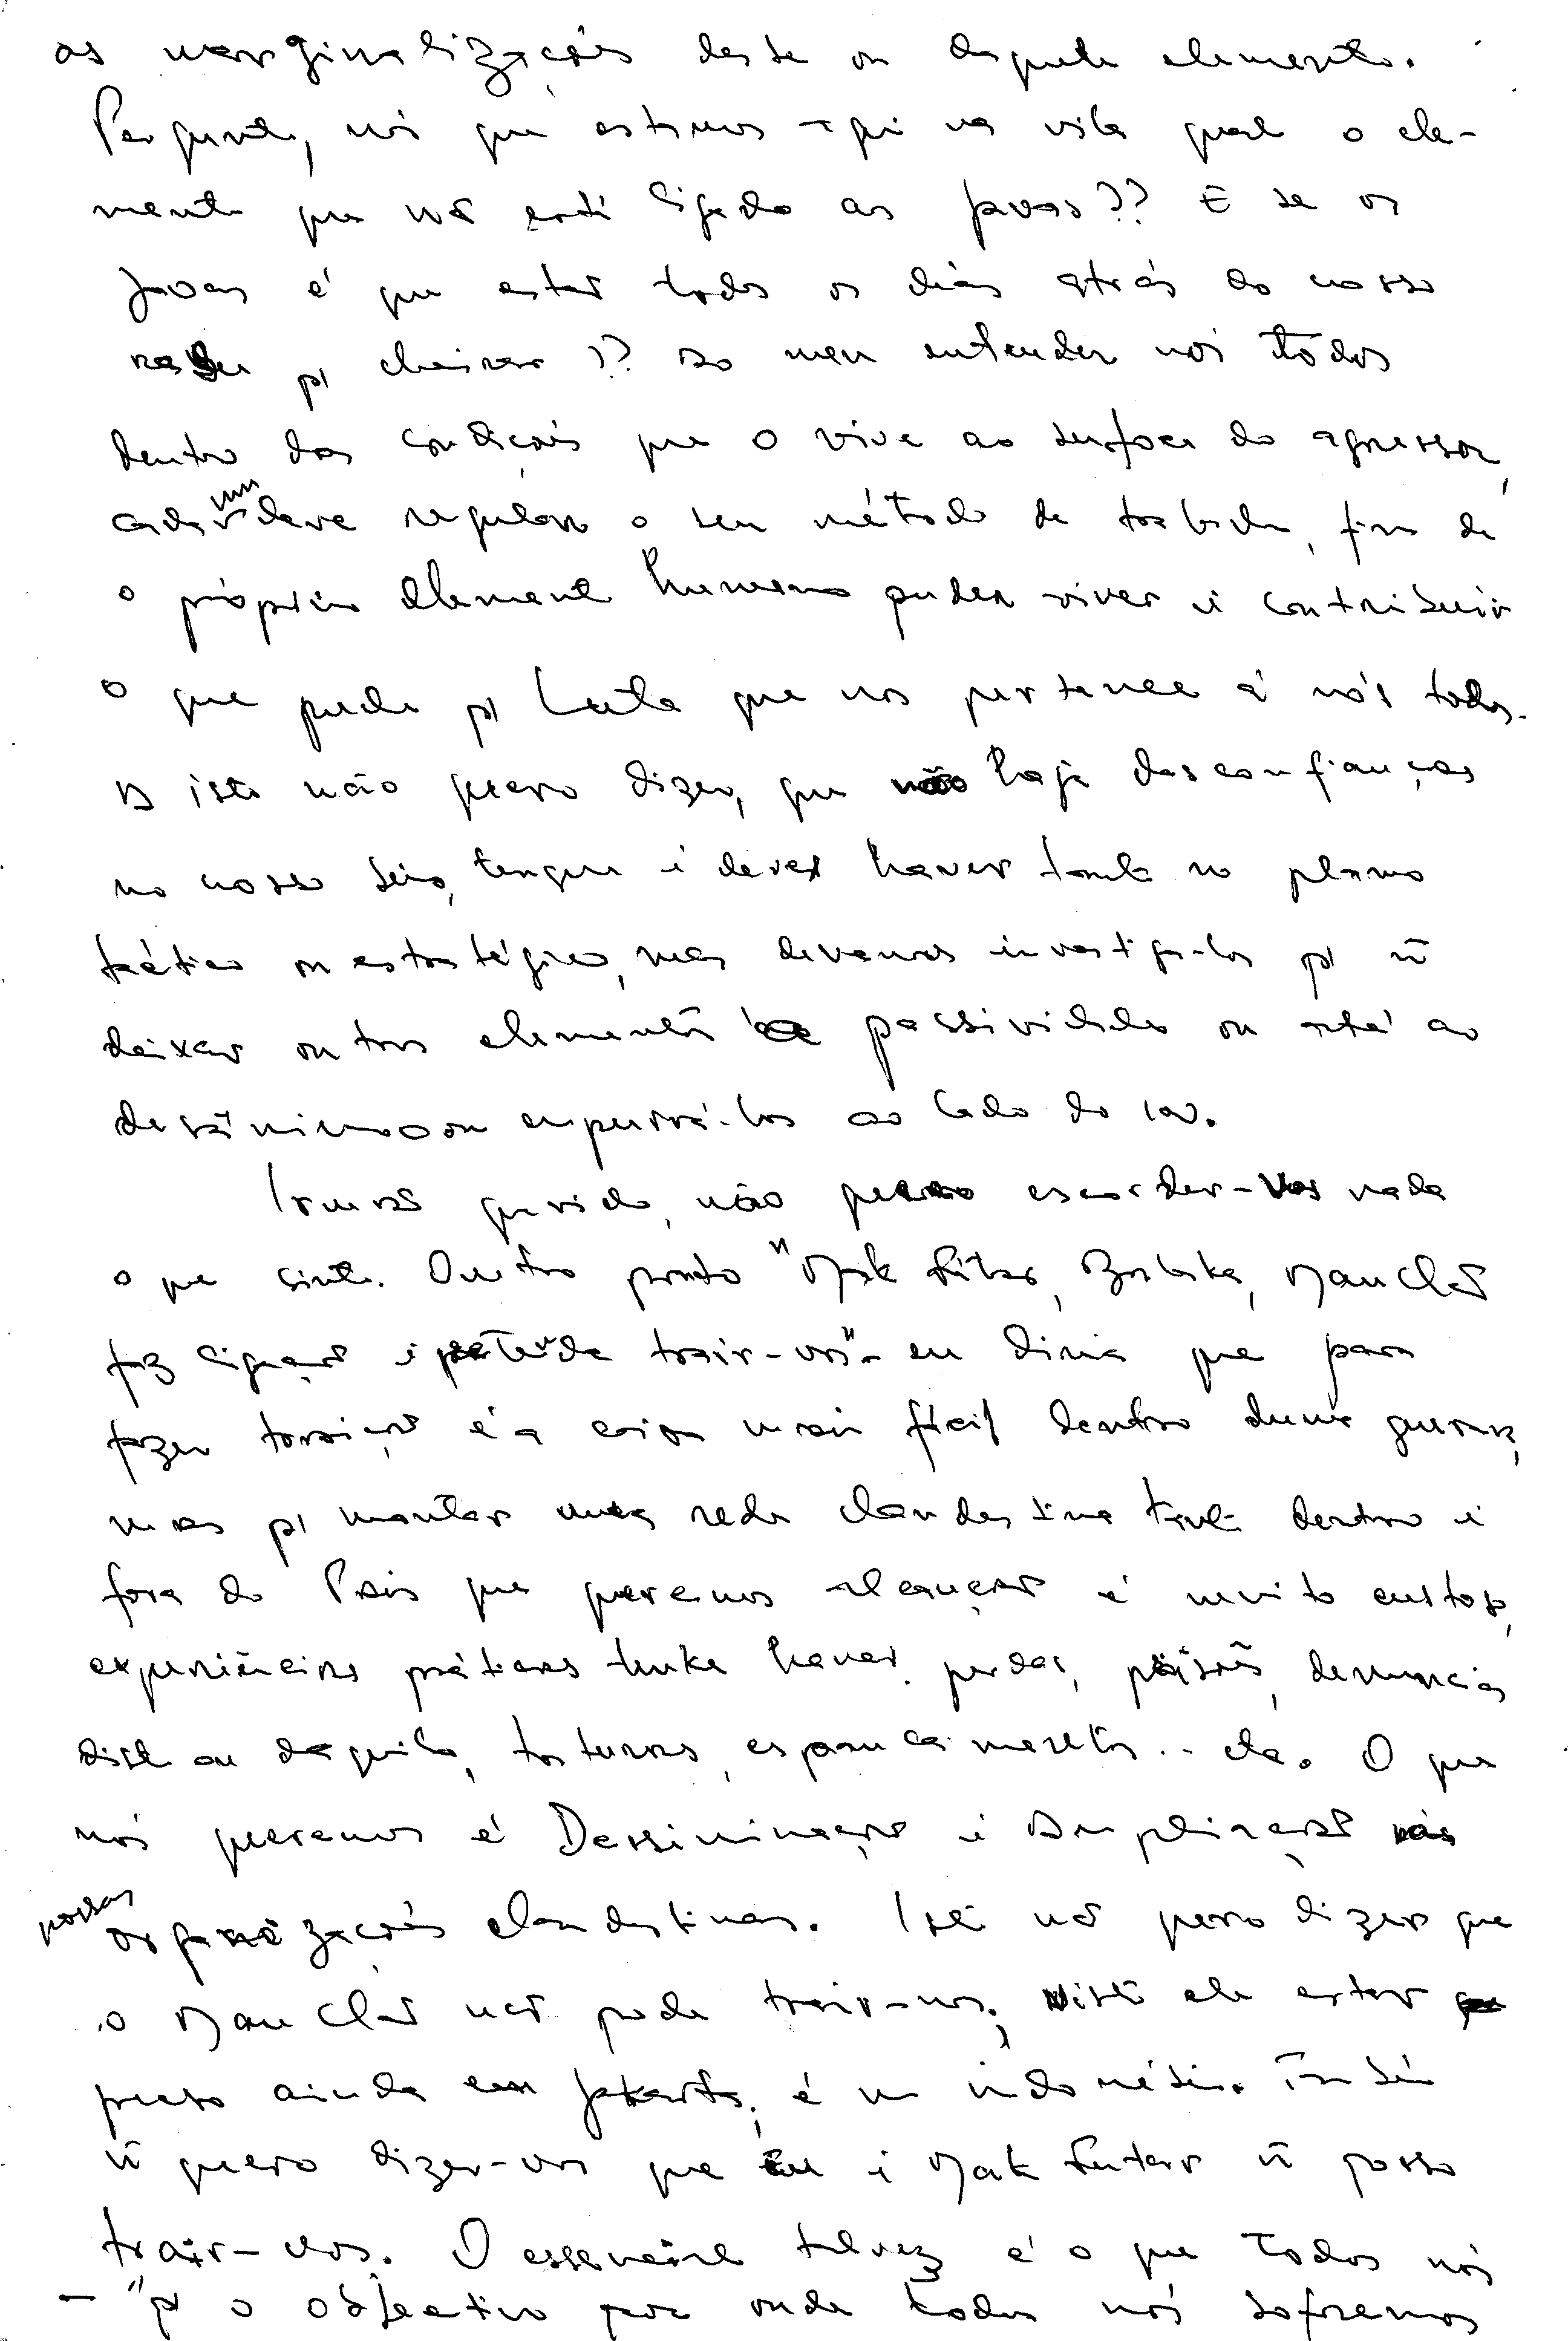 as marginalizações deste ou daquele elemento.
Pergunto, nós que estamos aqui na vila qual o ele-
mento que nã está ligado aos javas?? E se os
javas é que estã todos os dias atrás do nosso
p/ cheirar?? Ao meu entender nós todos
dentro das condições que o vive ao do agressor,
cada um deve regular o seu método de trabalho, fim de
o próprio elemento humano puder viver i contribuir
o que pude p/ Luta que nos pertence á nós todos.
A isto não quero dizer, que não haja desconfianças
no nosso seio, tenque i dever haver tanto no plano
táctico ou estratégico, mas devemos investiga-los p/ ñ
deixar outros elementos passividade ou até ao
desânimo ou empurrá-los ao lado do ini.
Irmã querido, não quero esconder-vos nada
o que sinto. Outro ponto "Mak Fútar, , Mau Clã
faz ligaçã i de trair-vos"- eu diria que para
fazer traiçã é a coisa mais fácil dentro duma guerra,
mas p/ montar uma rede clandestina tanto dentro i
fora do País que queremos alcançar é muito custoso,
experiências práticas tenke haver perdas, prisões, denuncias
disto ou daquilo, torturas, espancamentos... etc. O que
nós queremos é Dessiminaçã i Ampliaçã nas
nossas organizações clandestinas. Isto nã quero dizer que
o Mau Clã nã pode trair-nos, visto ele estar
preso ainda em Jakarta, é um indonésio. També
ñ quero dizer-vos que eu i Mak Futar ñ posso
trair-vos. O essencial talvez é o que todos nós
- "p/ o objectivo para onde todos nós sofremos